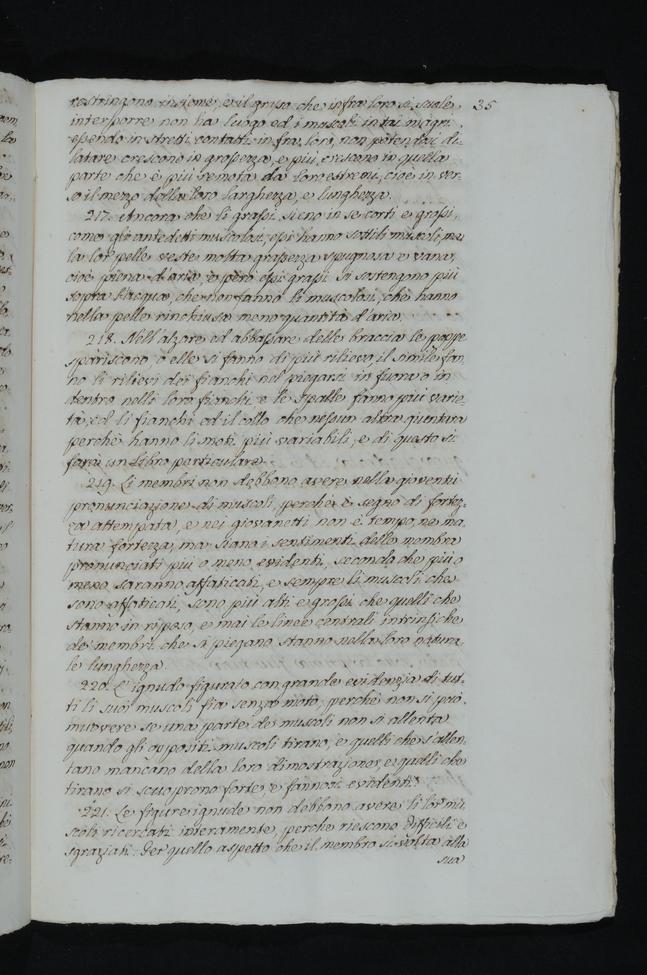 restringono insieme, e il grasso che infra loro si suole 35
interporre non ha luogo ed i muscoli in tai magri
essendo in stretti contatti infra loro, non potendosi di-
latare crescono in grossezza, e più crescono in quella
parte che è più remota da loro estremi, cioè in ver-
so il mezzo della loro larghezza, e lunghezza.
217. Ancora che li grassi sieno in se corti e grossi,
come gli antedetti muscolosi, essi hanno sottili muscoli, ma
la lor pelle veste molta grassezza spugnosa e vana,
cioè piena d'aria, e però essi grassi si sostengono più
sopra l'acqua, che non fanno li muscolosi, che hanno
nella pelle rinchiusa meno quantità d'aria.
218. Nell'alzare ed abbassare delle braccia le poppe
spariscono, o elle si fanno di più rilievo, il simile fan-
no li rilievi dei fianchi nel piegarsi in fuora o in
dentro nelli loro fianchi, e le Spalle fanno più varie-
tà, ed li fianchi ed il collo che nessun altra giuntura
perchè hanno li moti più variabili, e di questo si
farà un Libro particulare.
219. Li membri non debbono avere nella gioventù
pronunciazione di muscoli, perchè è segno di fortez-
za attempata, e nei giovanetti non è tempo, ne ma-
tura fortezza, ma siano i sentimenti delle membra
pronunciati più o meno evidenti, secondo che più o
meno saranno affaticati, e sempre li muscoli che
sono affaticati, sono più alti e grossi che quelli che
stanno in riposo, e mai le linee centrali intrinsiche
de' membri che si piegano stanno nella loro natura-
le lunghezza.
220. L'ignudo figurato con grande evidenzia di tut-
ti li suoi muscoli fia senza moto, perchè non si può
muovere se una parte de' muscoli non si allenta
quando gli oppositi muscoli tirano, e quelli che s'allen-
tano mancano della loro dimostrazione, e quelli che
tirano si scuoprono forte e fannosi evidenti.
221. Le figure ignude non debbono avere li lor mu-
scoli ricercati interamente, perchè riescono difficili e
sgraziati. Per quello aspetto che il membro si volta alla
sua